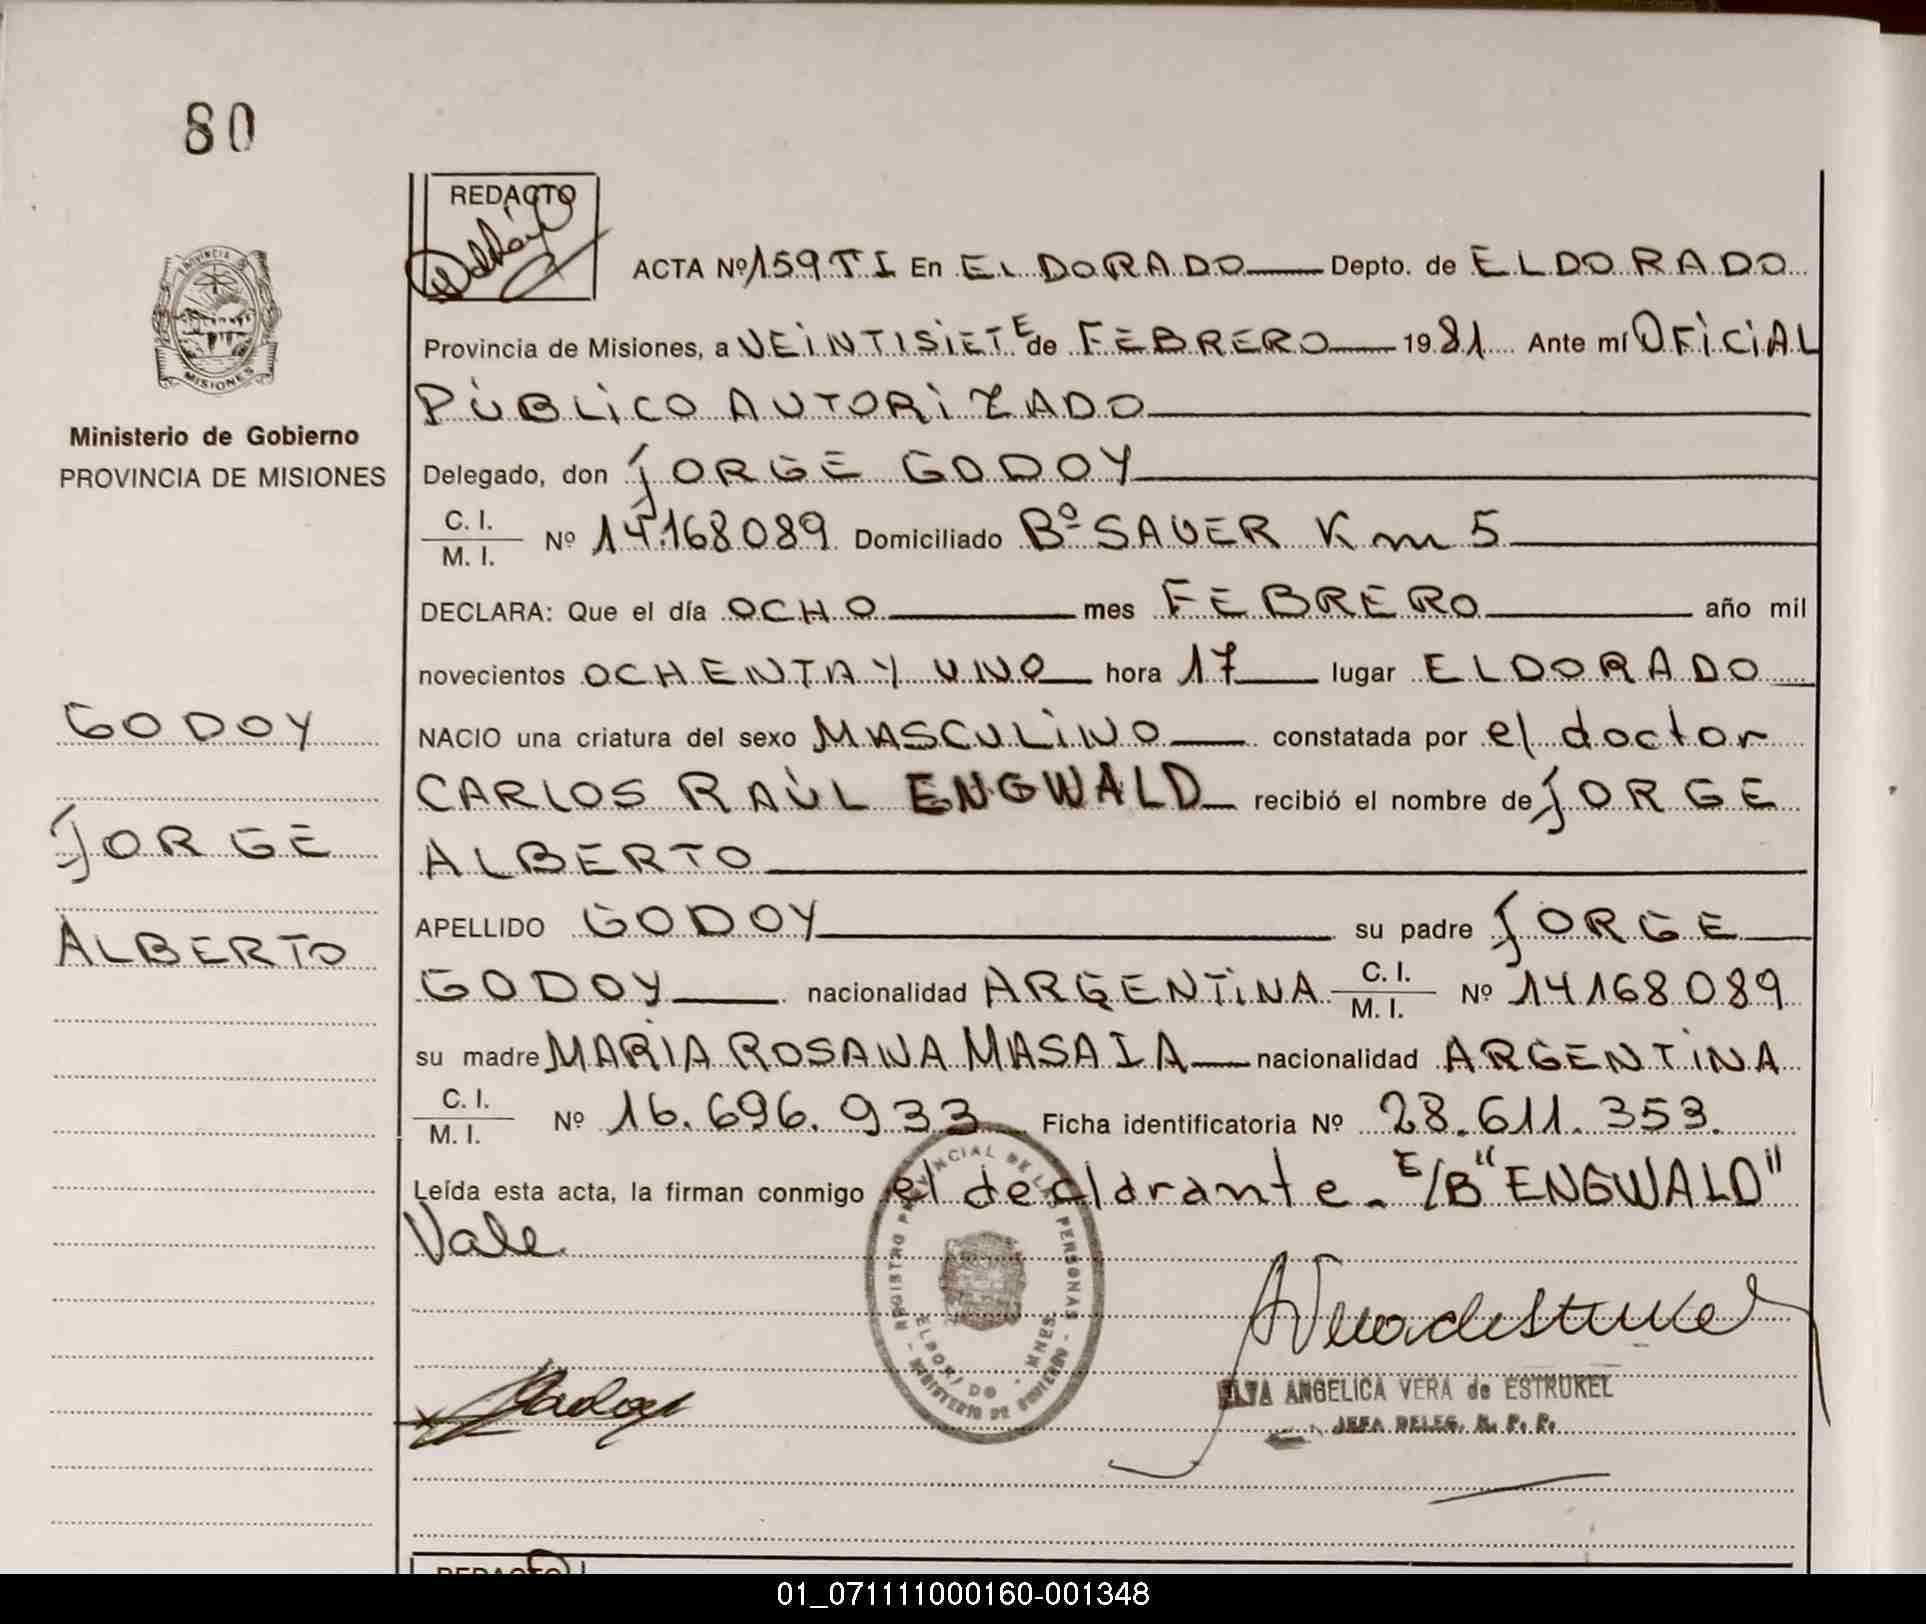 80
REDACTO
ACTA Nº 159 TI En ELDORADO Depto. de ELDORADO
Provincia de Misiones, a VEINTISIETE de FEBRERO 1981 Ante mí OFICIAL
PÚBLICO AUTORIZADO
Ministerio de Gobierno
PROVINCIA DE MISIONES
Delegado, don JORGE GODOY
C. I.
M. I. Nº 14.168.089 Domiciliado Bº SAUER Km 5
DECLARA: Que el día OCHO mes FEBRERO año mil
novecientos OCHENTA Y UNO hora 17 lugar ELDORADO
GODOY
NACIO una criatura del sexo MASCULINO constatada por el doctor
CARLOS RAÚL ENGWALD recibió el nombre de JORGE
JORGE
ALBERTO
APELLIDO GODOY su padre JORGE
ALBERTO
GODOY nacionalidad ARGENTINA C. I. M. I. Nº 14168089
su madre MARÍA ROSANA MASAIA nacionalidad ARGENTINA
C. I.
M. I. Nº 16.696.933 Ficha identificatoria Nº 28.611.353.
Leída esta acta, la firman conmigo el declarante. E/B "ENGWALD"
Vale
REGISTRO PROVINCIAL DE LAS PERSONAS - MINISTERIO DE GOBIERNO
ELDORADO - MNES.
ELVA ANGELICA VERA de ESTRUKEL
JEFA DELEG. R. P. P.
REDACTO
01_071111000160-001348